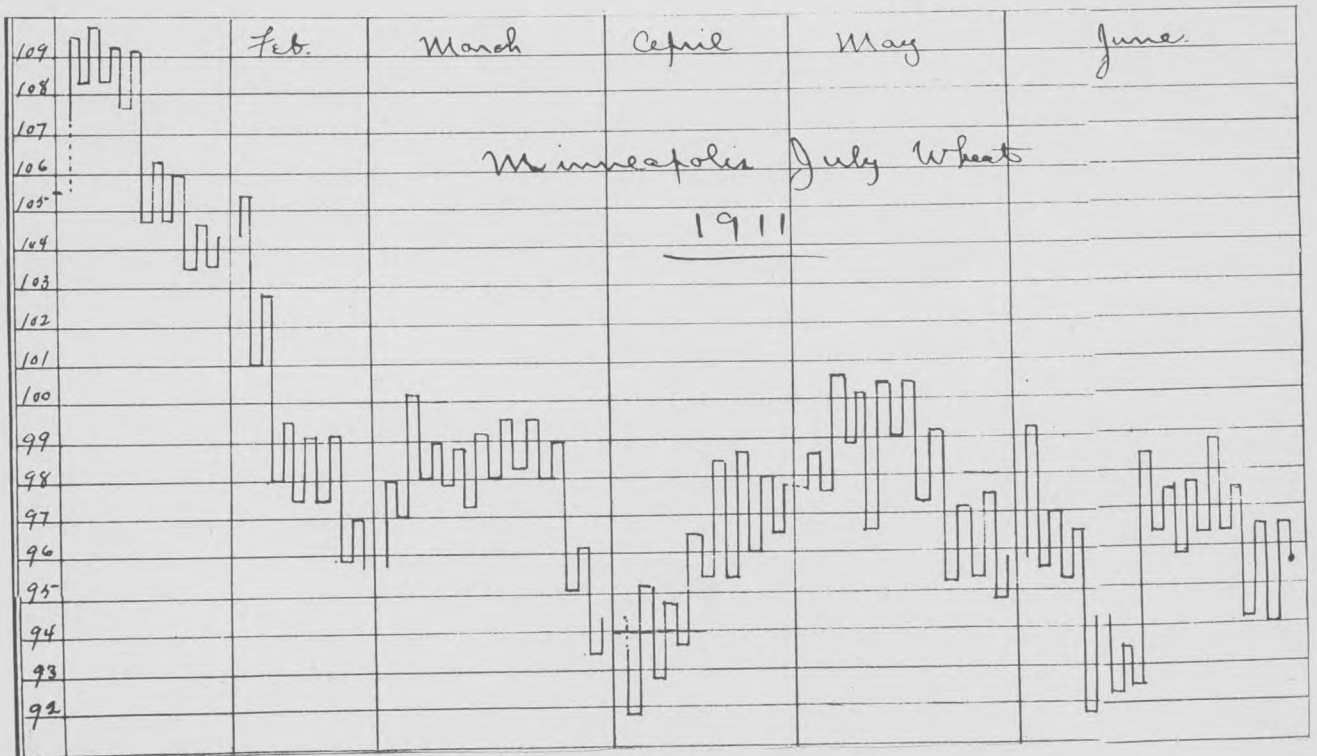 Feb. March April May June.
Minneapolis July Wheat
1911
109
108
107
106
105
104
103
102
101
100
99
98
97
96
95
94
93
92